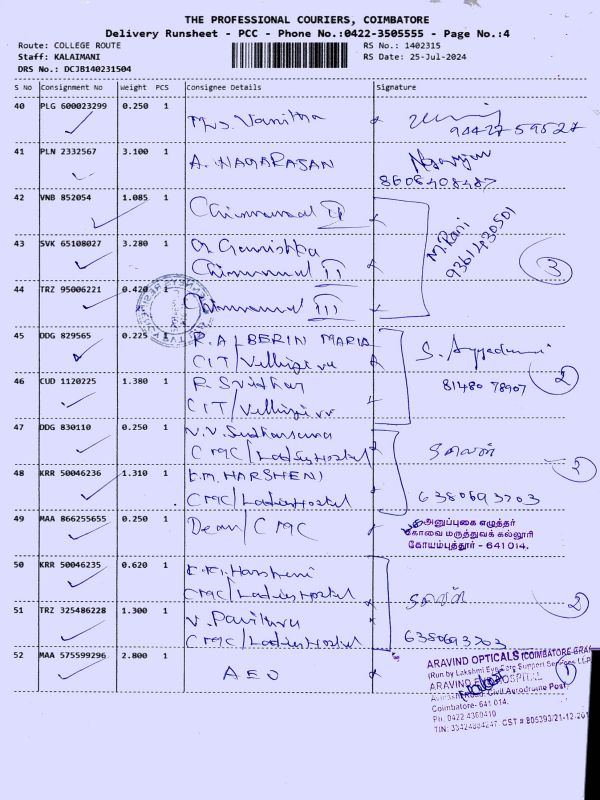 THE PROFESSIONAL COURIERS, COIMBATORE
Delivery Runsheet - PCC - Phone No.:0422-3505555 - Page No.:4
Route: COLLEGE ROUTE
RS No.: 1402315
Staff: KALAIMANI
RS Date: 25-Jul-2024
DRS No.: DCJB140231504
S No Consignment No Weight PCS Consignee Details Signature
40 PLG 600023299 0.250 1
Mrs. Vanitha
94427 59527
41 PLN 2332567 3.100 1
A. NAGARAJAN
8608408487
42 VNB 852054 1.085 1
II
M. Rani
9361430501
43 SVK 65108027 3.280 1
III
3
44 TRZ 95006221 0.420
III
45 DDG 829565 0.225 1
R. ALBERIN MARIA
CIT/
S.
46 CUD 1120225 1.380 1
CIT/
81480 78907
2
47 DDG 830110 0.250 1
CMC/Ladies Hostel
2
48 KRR 50046236 1.310 1
K.M. HARSHENI
CMC/Ladies Hostel
6380693703
49 MAA 866255655 0.250 1
Dean/CMC
அனுப்புகை எழுத்தர்
கோவை மருத்துவக் கல்லூரி
கோயம்புத்தூர் - 641 014.
50 KRR 50046235 0.620 1
K.M. Harsheni
CMC/Ladies Hostel
2
51 TRZ 325486228 1.300 1
V. Pavithra
CMC/Ladies Hostel
6380693703
52 MAA 575599296 2.800 1
AEO
ARAVIND OPTICALS (COIMBATORE
(Run by Lakshmi Eye Care Support Services LLP
ARAVIND EYE HOSPITAL
Avinashi Road, Civil Aerodrome Post
Coimbatore- 641 014.
Ph. 0422 4360410
TIN: 33424884247. CST # 805393/21-12-201
1